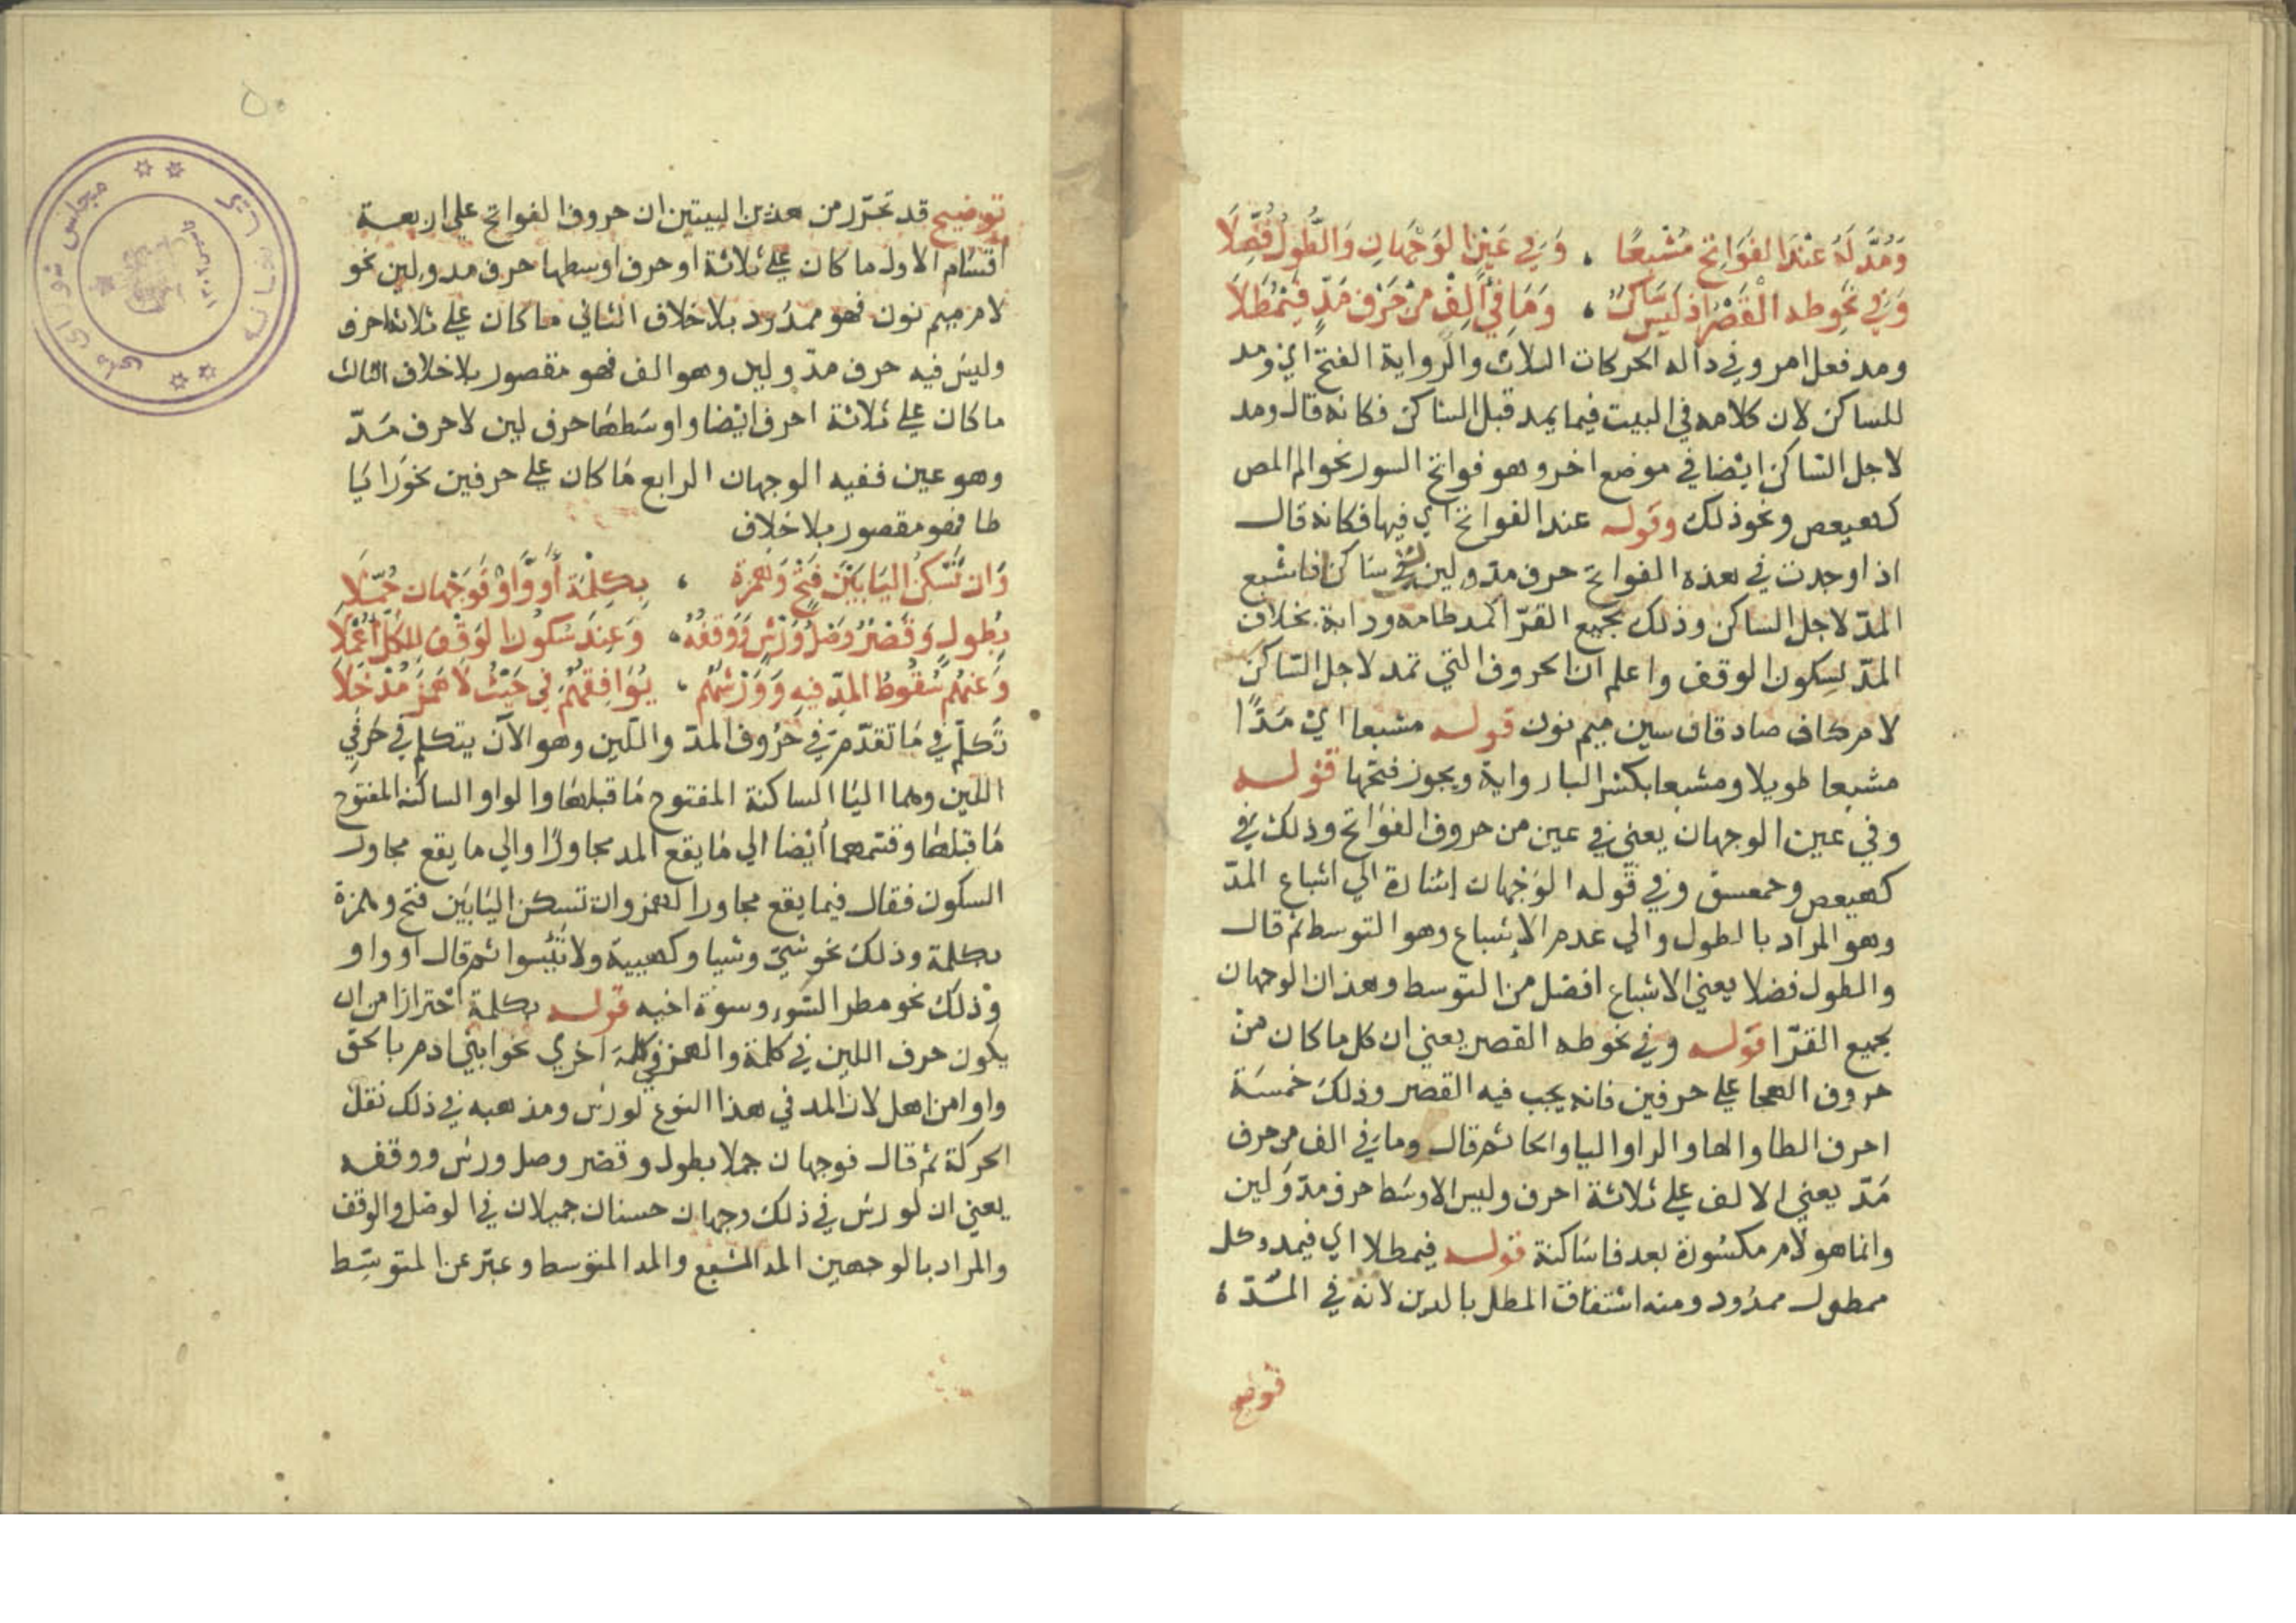 وَمُدَّ لَهُ عِنْدَ الفَوَاتِحِ مُشْبِعًا ، وَفِي عَيْنٍ الوَجْهَانِ وَالطُّولُ فُضِّلَا
وَفِي نَحْوِ طه القَصْرُ اذ لَيْسَ سَاكِنٌ ، وَمَا فِي أَلِفْ مِنْ حَرْفِ مَدٍّ فَيُمْطَلَا
ومد فعل امر وفي داله الحركات الثلاث والرواية الفتح اي ومد
للساكن لان كلامه في البيت فيما يمد قبل الساكن فكانه قال ومد
لاجل الساكن ايضا في موضع اخر وهو فواتح السور نحو الم المص
كهيعص ونحو ذلك وقوله عند الفواتح اي فيها فكانه قال
اذا وجدت في هذه الفواتح حرف مد ولين لقي ساكنا فاشبع
المدّ لاجل الساكن وذلك لجميع القرّا كمد طامه ودابة بخلاف
المدّ لسكون الوقف واعلم ان الحروف التي تمد لاجل الساكن
لام كاف صاد قاف سين ميم نون قوله مشبعا اي مَدًّا
مشبعا طويلا ومشبعا بكسر البا رواية ويجوز فتحها قوله
وفي عين الوجهان يعني في عين من حروف الفواتح وذلك في
كهيعص وحمعسق وفي قوله الوجهان إشارة الي اشباع المدّ
وهو المراد بالطول والي عدم الإشباع وهو التوسط ثم قال
والطول فضلا يعني الاشباع افضل من التوسط وهذان الوجهان
لجميع القرّا قوله وفي نحو طه القصر يعني ان كل ما كان من
حروف الهجا علي حرفين فانه يجب فيه القصر وذلك خمسة
احرف الطا والها والرا واليا والحا ثم قال وما في الف من حرف
مَدّ يعني الالف علي ثلاثة احرف وليس الاوسط حرف مدّ ولين
وانما هو لام مكسورة بعد فا ساكنة قوله فيمطلا اي فيمد وكل
ممطول ممدود ومنه اشتقاق المطل بالدين لانه في المدّة
توضيح
توضيح قد تحرّر من هذين البيتين ان حروف الفواتح علي اربعة
اقسام الاول ما كان علي ثلاثة احرف اوسطها حرف مد ولين نحو
لام ميم نون فهو ممدود بلا خلاف الثاني ما كان علي ثلاثة احرف
وليس فيه حرف مدّ ولين وهو الف فهو مقصور بلا خلاف الثالث
ما كان علي ثلاثة احرف ايضا واوسطها حرف لين لا حرف مَدّ
وهو عين ففيه الوجهان الرابع ما كان علي حرفين نحو را يا
طا فهو مقصور بلا خلاف
وَان تَسْكُنِ اليَا بَيْنَ فَتْحٍ وَهَمْزَةٍ ، بِكِلْمَةٍ أَوْ وَاوٌ فَوَجْهَانِ جُمِّلَا
بِطُولٍ وَقَصْرٍ وَصْلُ وَرْشٍ وَوَقْفُهُ ، وَعِنْدَ سُكُونِ الوَقْفِ لِلكُلِّ أُعْمِلَا
وَعَنْهُمْ سُقُوطُ المَدِّ فِيهِ وَوَرْشُهُمْ ، يُوَافِقُهُمْ فِي حَيْثُ لَا هَمْزَ مُدْخَلَا
تكلّم في ما تقدّم في حروف المدّ واللّين وهو الآن يتكلم في حرفي
اللّين وهما اليا الساكنة المفتوح ما قبلها والواو الساكنة المفتوح
ما قبلها وقسمهما أيضا الي ما يقع المد مجاورًا والي ما يقع مجاور
السكون فقال فيما يقع مجاورا للهمز وان تسكن اليا بَين فتح وهمزة
بكلمة وذلك نحو شي وشيا وكهيية ولا تيئسوا ثم قال او واو
وذلك نحو مطر السّوء وسوة اخيه قوله بكلمة احترازا من ان
يكون حرف اللين في كلمة والهمز في كلمة اخري نحو ابني ادم بالحق
واوا من اهل لان المد في هذا النوع لورش ومذهبه في ذلك نقل
الحركة ثم قال فوجهان جملا بطول وقصر وصل ورش ووقفه
يعني ان لورش في ذلك وجهان حسنان جميلان في الوصل والوقف
والمراد بالوجهين المد المشبع والمد المتوسط وعبّر عن المتوسّط